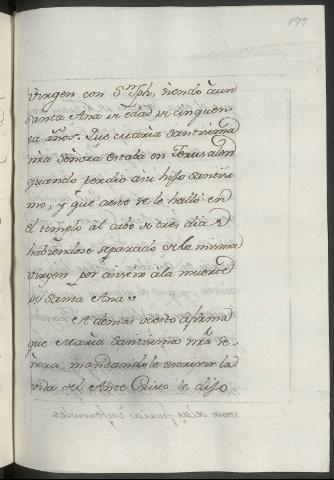 179
Virgen con Sn Jph, siendo aun
Santa Ana de edad de cinquen
ta años. Que Maria Santissima
nra Señora estaba en Jerusalen
quando perdio a su hijo Santiss
mo, y que a este se le halló en
el templo al cabo de tres dias
habiendose separado de la misma
Virgen por asistir a la muerte
de Santa Ana"
Ademas de esto afirma
que Maria Santissima nra Se
ñora mandandole escrivir la
vida del Ante Cristo le dijo